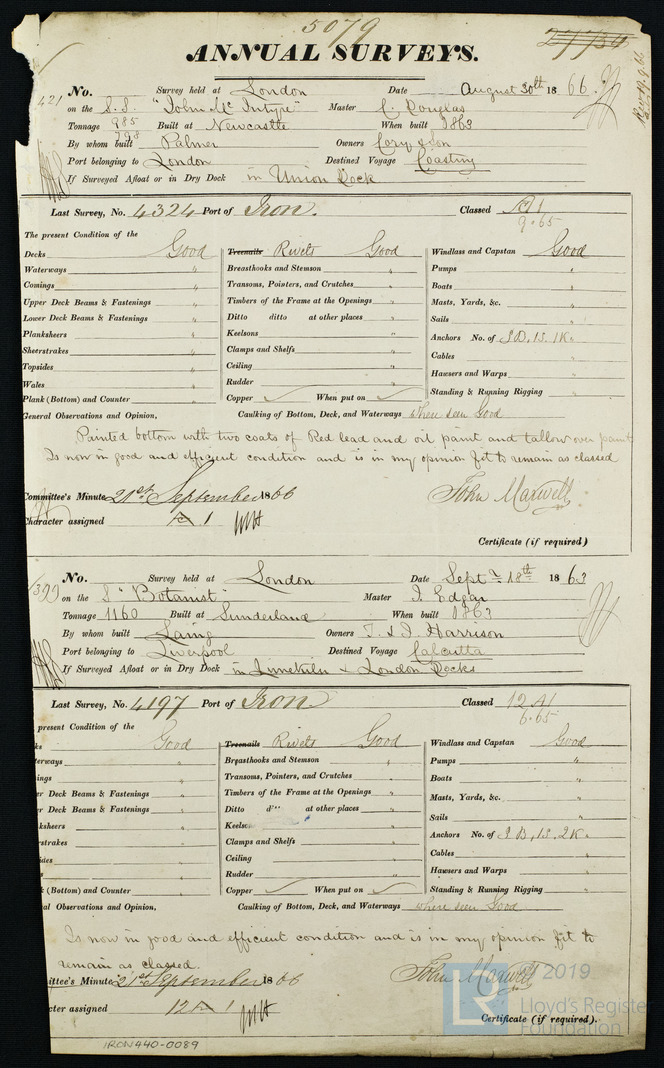 5079
ANNUAL SURVEYS.
No. Survey held at London Date August 30th 1866
421
on the S.S. "John McIntyre" Master C. Douglas
Tonnage 985 Built at Newcastle When built 1863
798
By whom built Palmer Owners Cory & Son
Port belonging to London Destined Voyage Coasting
If Surveyed Afloat or in Dry Dock in Union Dock
Last Survey, No. 4324 Port of Iron. Classed A1
9.65
The present Condition of the
Decks Good Treenails Rivets Good Windlass and Capstan Good
Waterways " Breasthooks and Stemson " Pumps "
Comings " Transoms, Pointers, and Crutches " Boats "
Upper Deck Beams & Fastenings " Timbers of the Frame at the Openings " Masts, Yards, &c. "
Lower Deck Beams & Fastenings " Ditto ditto at other places " Sails "
Planksheers " Keelsons " Anchors No. of 3B, 1S, 1K.
Sheerstrakes " Clamps and Shelfs " Cables "
Topsides " Ceiling " Hawsers and Warps "
Wales " Rudder " Standing & Running Rigging "
Plank (Bottom) and Counter " Copper When put on
General Observations and Opinion, Caulking of Bottom, Deck, and Waterways where seen Good
Painted bottom with two coats of Red lead and oil paint and tallow over paint
Is now in good and efficient condition and is in my opinion fit to remain as classed
Committee's Minute 21st September 1866 John Maxwell
Character assigned A 1
Certificate (if required)
No. Survey held at London Date Sept. 18th 1863
on the S "Botanist" Master J. Edgar
Tonnage 1160 Built at Sunderland When built 1863
By whom built Laing Owners T. & J. Harrison
Port belonging to Liverpool Destined Voyage Calcutta
If Surveyed Afloat or in Dry Dock in Limekiln & London Docks
Last Survey, No. 4197 Port of Iron Classed 12 A1
6.65
present Condition of the
ks Good Treenails Rivets Good Windlass and Capstan Good
terways " Breasthooks and Stemson " Pumps "
ings " Transoms, Pointers, and Crutches " Boats "
er Deck Beams & Fastenings " Timbers of the Frame at the Openings " Masts, Yards, &c. "
er Deck Beams & Fastenings " Ditto do at other places " Sails "
ksheers " Keelso Anchors No. of 3B, 1S, 2K.
rstrakes " Clamps and Shelfs " Cables "
ides " Ceiling " Hawsers and Warps "
" Rudder " Standing & Running Rigging "
k (Bottom) and Counter " Copper When put on
al Observations and Opinion, Caulking of Bottom, Deck, and Waterways where seen Good
Is now in good and efficient condition and is in my opinion fit to
remain as classed.
ittee's Minute 21st September 1866 John Maxwell
cter assigned 12 A 1
Certificate (if required).
IRON440-0089
LR
2019
Lloyd's Register
Foundation